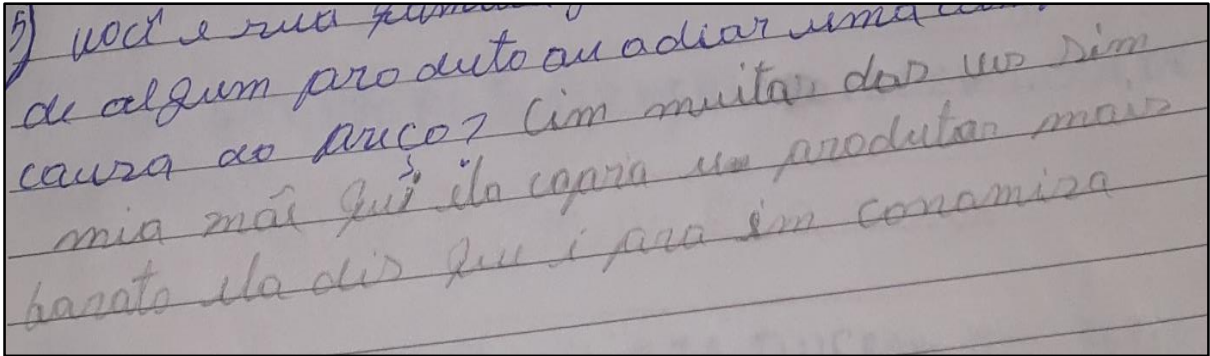 5) você e sua
de algum produto ou adiar uma
causa ao preço? Cim muitas das ves sim
mia mãe qui ela copra us produtos mais
barato ela dis que i para sim conomiza